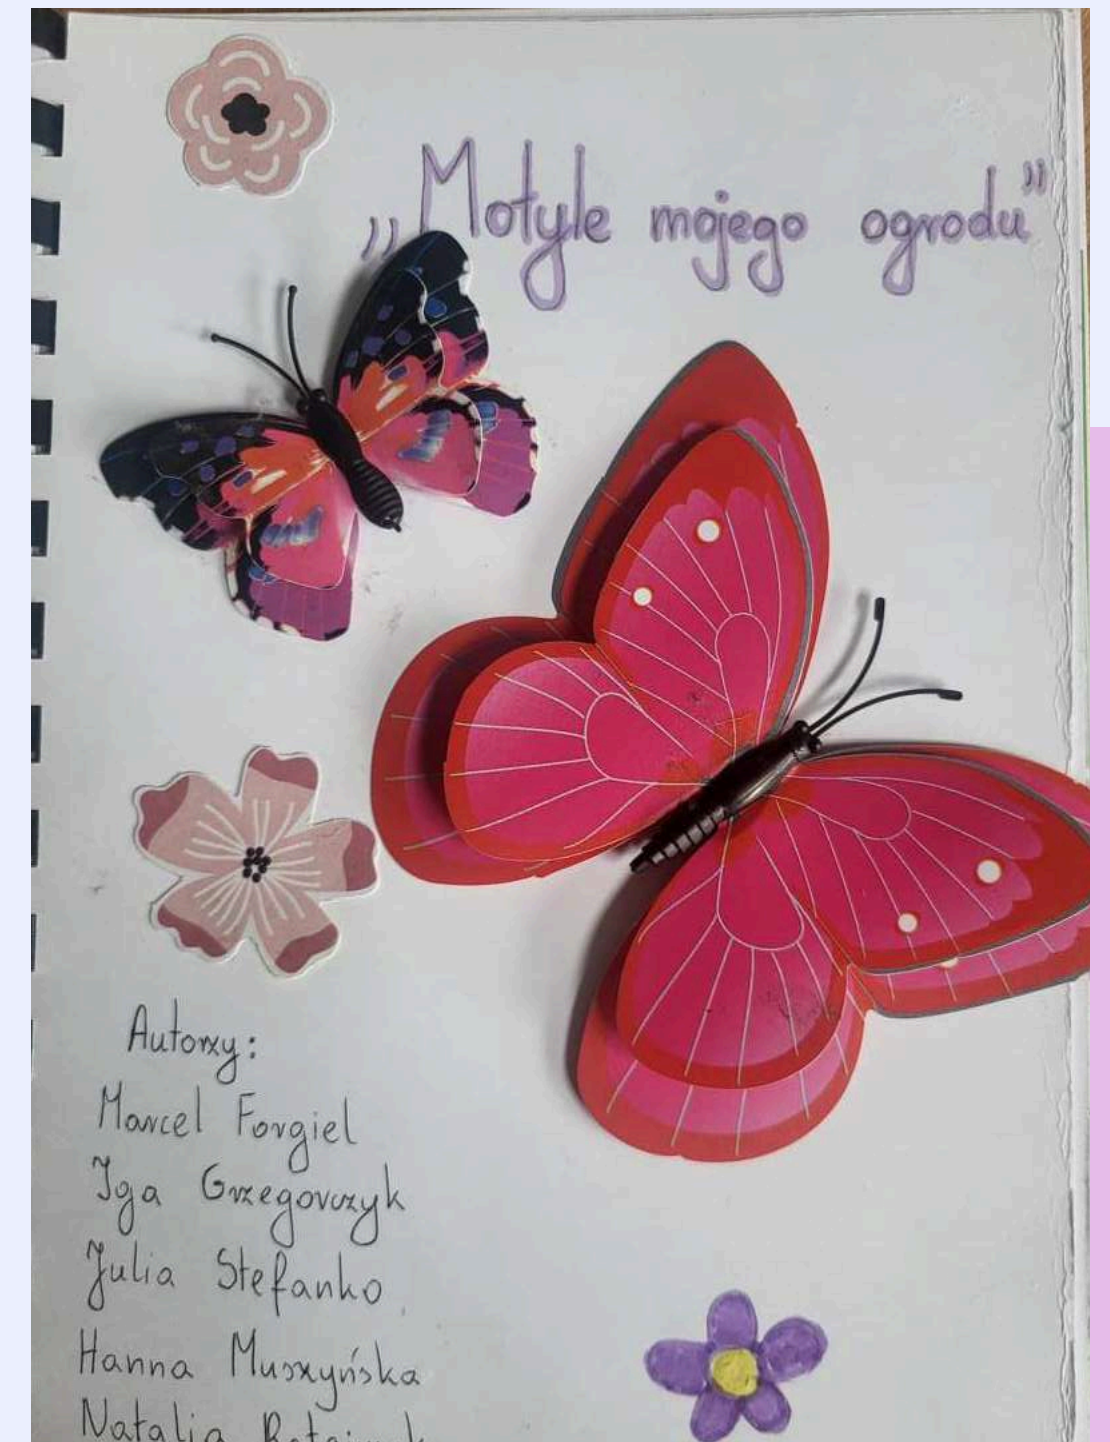 „Motyle mojego ogrodu”
Autorzy:
Marcel Forgiel
Iga Grzegorczyk
Julia Stefanko
Hanna Muszyńska
Natalia